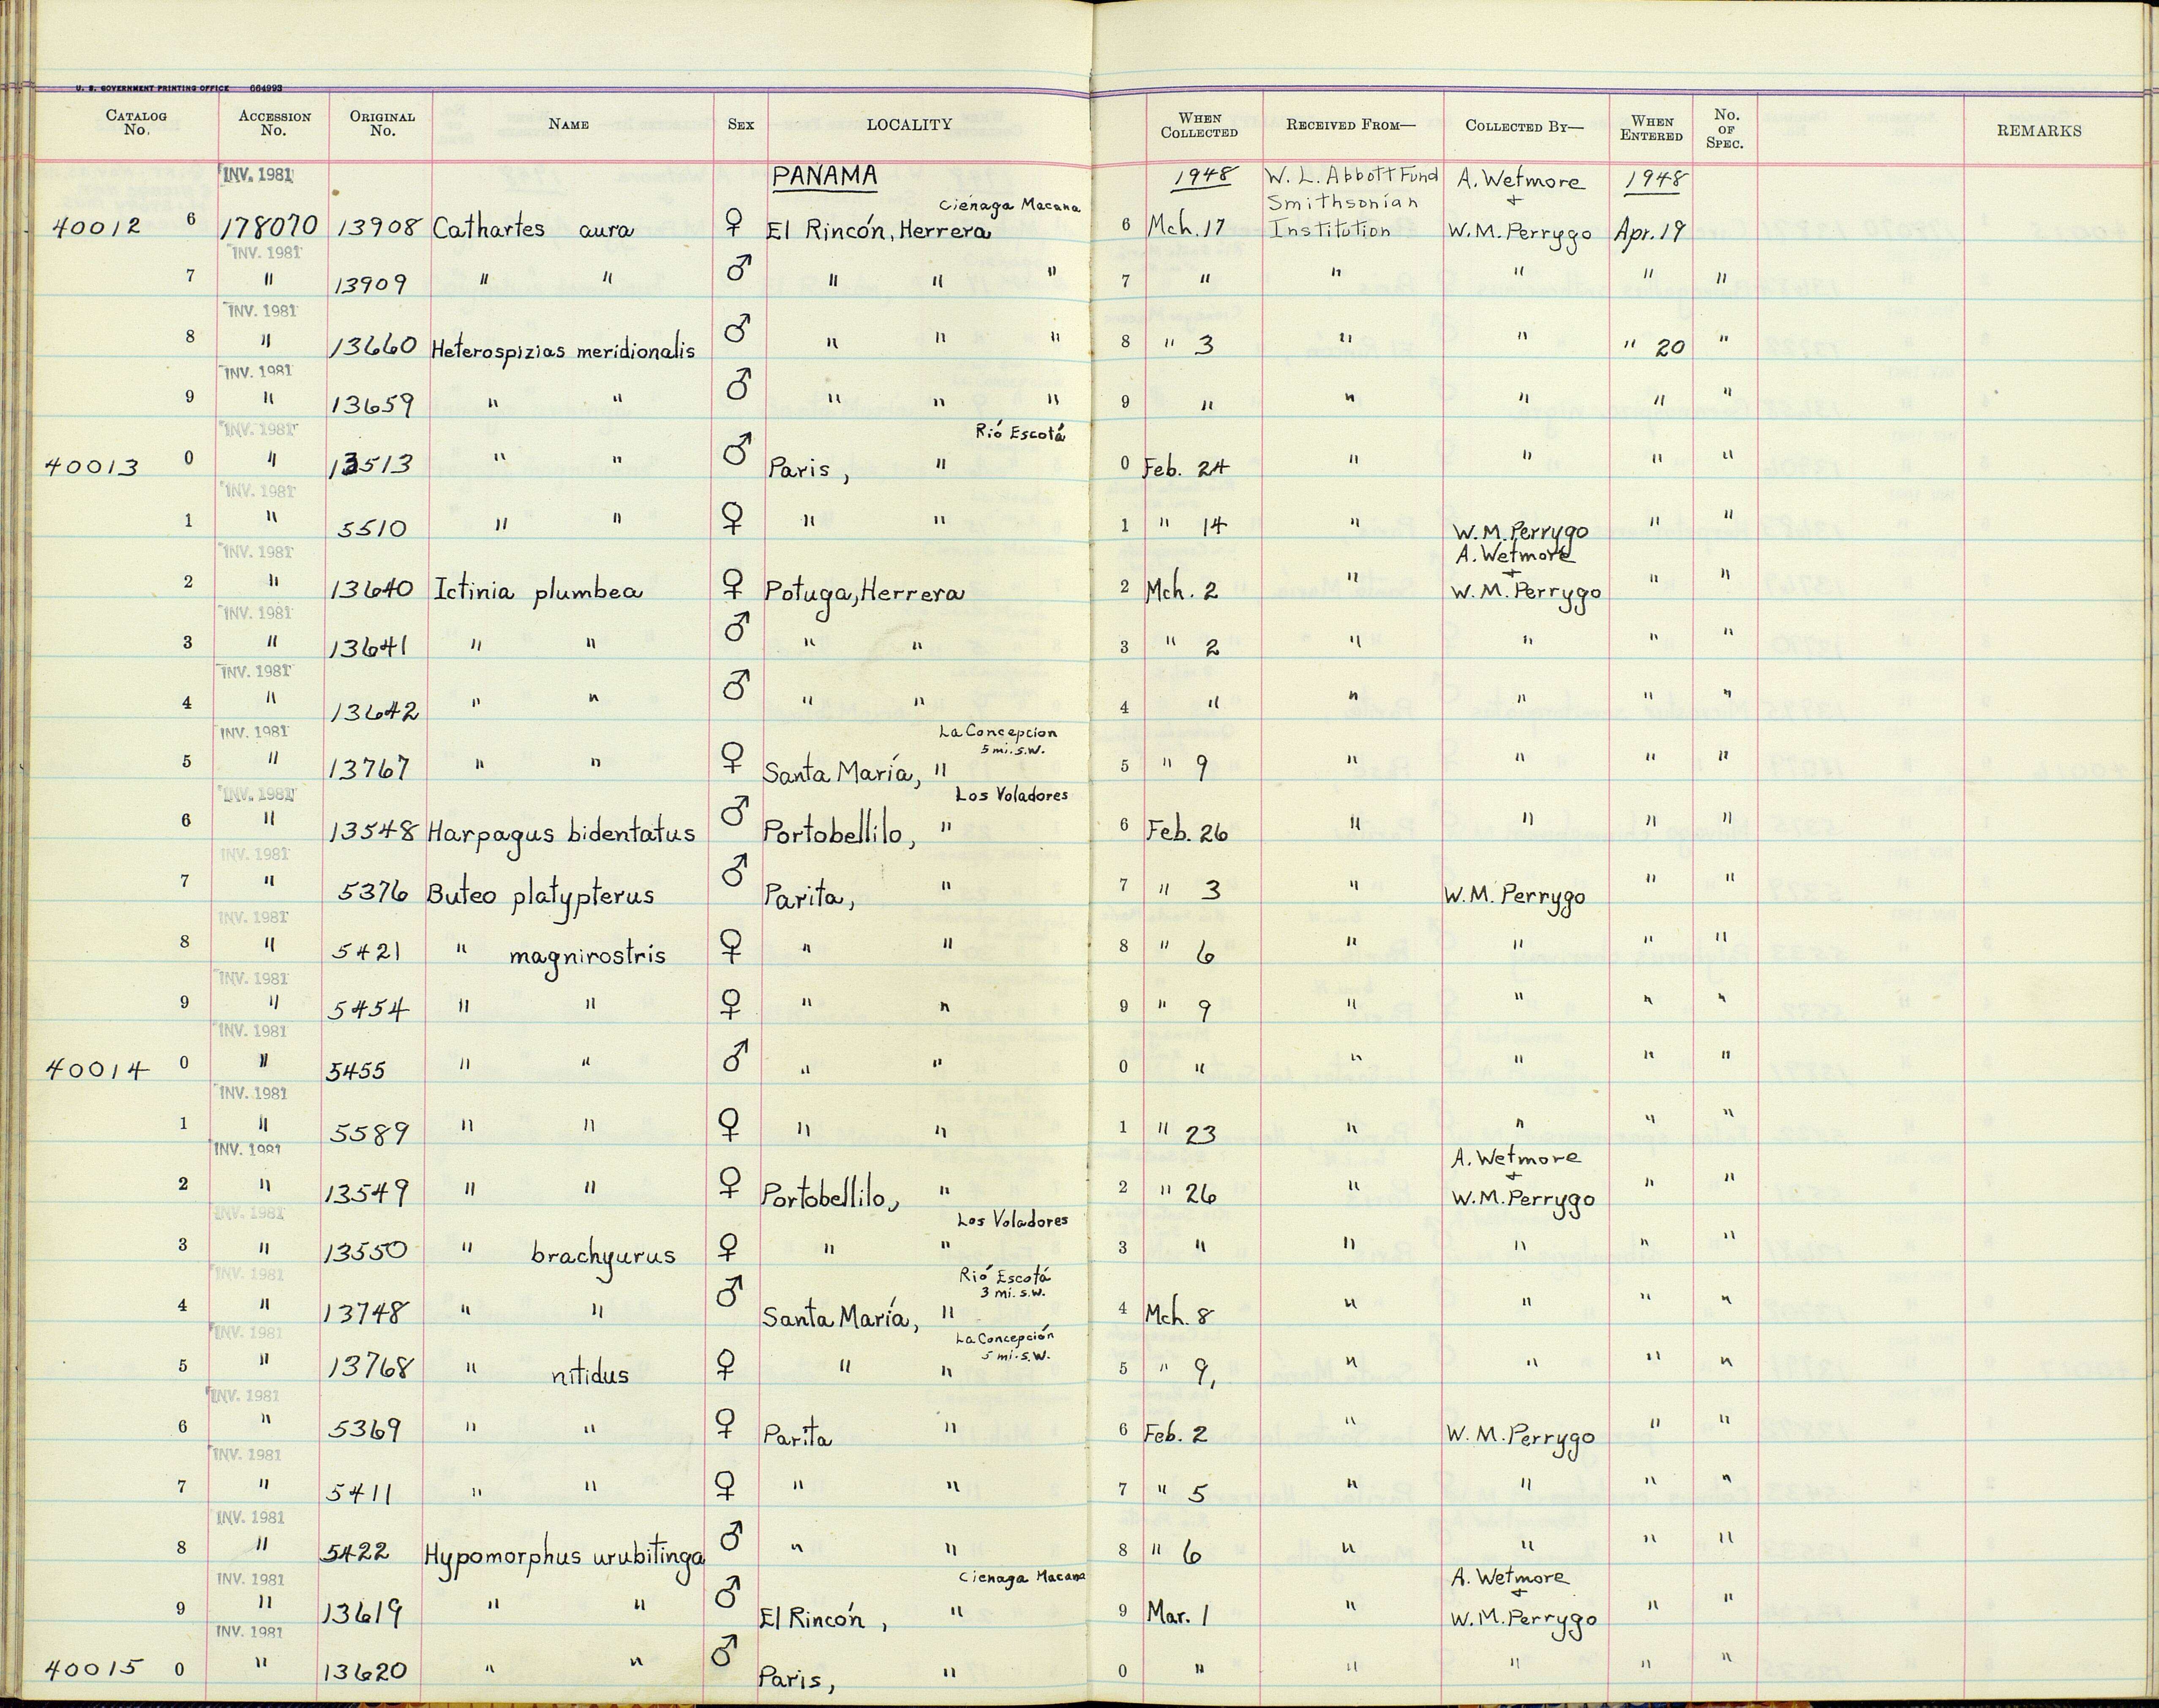 U. S. GOVERNMENT PRINTING OFFICE 664993
CATALOG No. ACCESSION No. ORIGINAL No. NAME SEX LOCALITY WHEN COLLECTED RECEIVED FROM— COLLECTED BY— WHEN ENTERED No. OF SPEC. REMARKS
INV. 1981 PANAMA 1948 W. L. Abbott Fund A. Wetmore 1948
Cienaga Macana Smithsonian +
40012 6 178070 13908 Cathartes aura ♀ El Rincón, Herrera 6 Mch. 17 Institution W. M. Perrygo Apr. 19
INV. 1981
7 " 13909 " " ♂ " " " 7 " " " " "
INV. 1981
8 " 13660 Heterospizias meridionalis ♂ " " " 8 " 3 " " " 20 "
INV. 1981
9 " 13659 " " ♂ " " " 9 " " " " "
INV. 1981 Rió Escotá
40013 0 " 13513 " " ♂ Paris, " 0 Feb. 24 " " " "
INV. 1981
1 " 5510 " " ♀ " " 1 " 14 " W. M. Perrygo " "
INV. 1981 A. Wetmore
+
2 " 13640 Ictinia plumbea ♀ Potuga, Herrera 2 Mch. 2 " W. M. Perrygo " "
INV. 1981
3 " 13641 " " ♂ " " 3 " 2 " " " "
INV. 1981
4 " 13642 " " ♂ " " 4 " " " " "
INV. 1981 La Concepcion
5 mi. s.w.
5 " 13767 " " ♀ Santa María, " 5 " 9 " " " "
INV. 1981 Los Voladores
6 " 13548 Harpagus bidentatus ♂ Portobellilo, " 6 Feb. 26 " " " "
INV. 1981
7 " 5376 Buteo platypterus ♂ Parita, " 7 " 3 " W. M. Perrygo " "
INV. 1981
8 " 5421 " magnirostris ♀ " " 8 " 6 " " " "
INV. 1981
9 " 5454 " " ♀ " " 9 " 9 " " " "
INV. 1981
40014 0 " 5455 " " ♂ " " 0 " " " " "
INV. 1981
1 " 5589 " " ♀ " " 1 " 23 " " " "
INV. 1981 A. Wetmore
+
2 " 13549 " " ♀ Portobellilo, " 2 " 26 " W. M. Perrygo " "
INV. 1981 Los Voladores
3 " 13550 " brachyurus ♀ " " 3 " " " " "
INV. 1981 Rió Escotá
3 mi. s.w.
4 " 13748 " " ♂ Santa María, " 4 Mch. 8 " " " "
INV. 1981 La Concepción
5 mi. s.w.
5 " 13768 " nitidus ♀ " " 5 " 9, " " " "
INV. 1981
6 " 5369 " " ♀ Parita " 6 Feb. 2 " W. M. Perrygo " "
INV. 1981
7 " 5411 " " ♀ " " 7 " 5 " " " "
INV. 1981
8 " 5422 Hypomorphus urubitinga ♂ " " 8 " 6 " " " "
INV. 1981 Cienaga Macana A. Wetmore
+
9 " 13619 " " ♂ El Rincón, " 9 Mar. 1 " W. M. Perrygo " "
INV. 1981
40015 0 " 13620 " " ♂ Paris, " 0 " " " " "